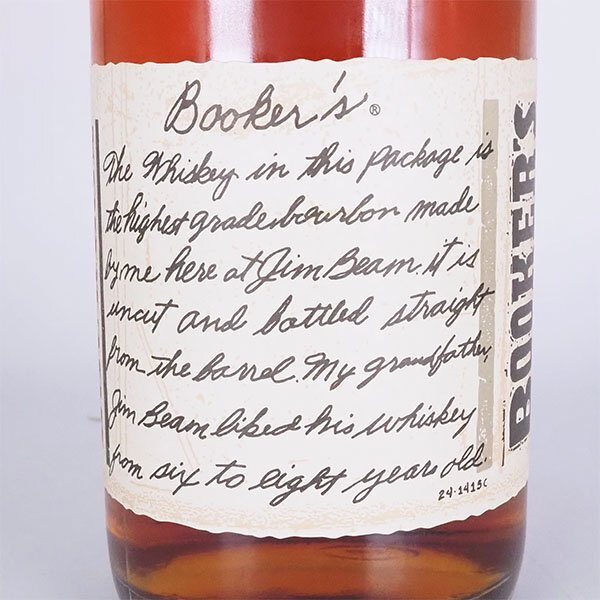 Booker's®
The Whiskey in this package is
the highest grade bourbon made
by me here at Jim Beam. it is
uncut and bottled straight
from the barrel. My grandfather,
Jim Beam liked his whiskey
from six to eight years old.
24-1415C
BOOKER'S